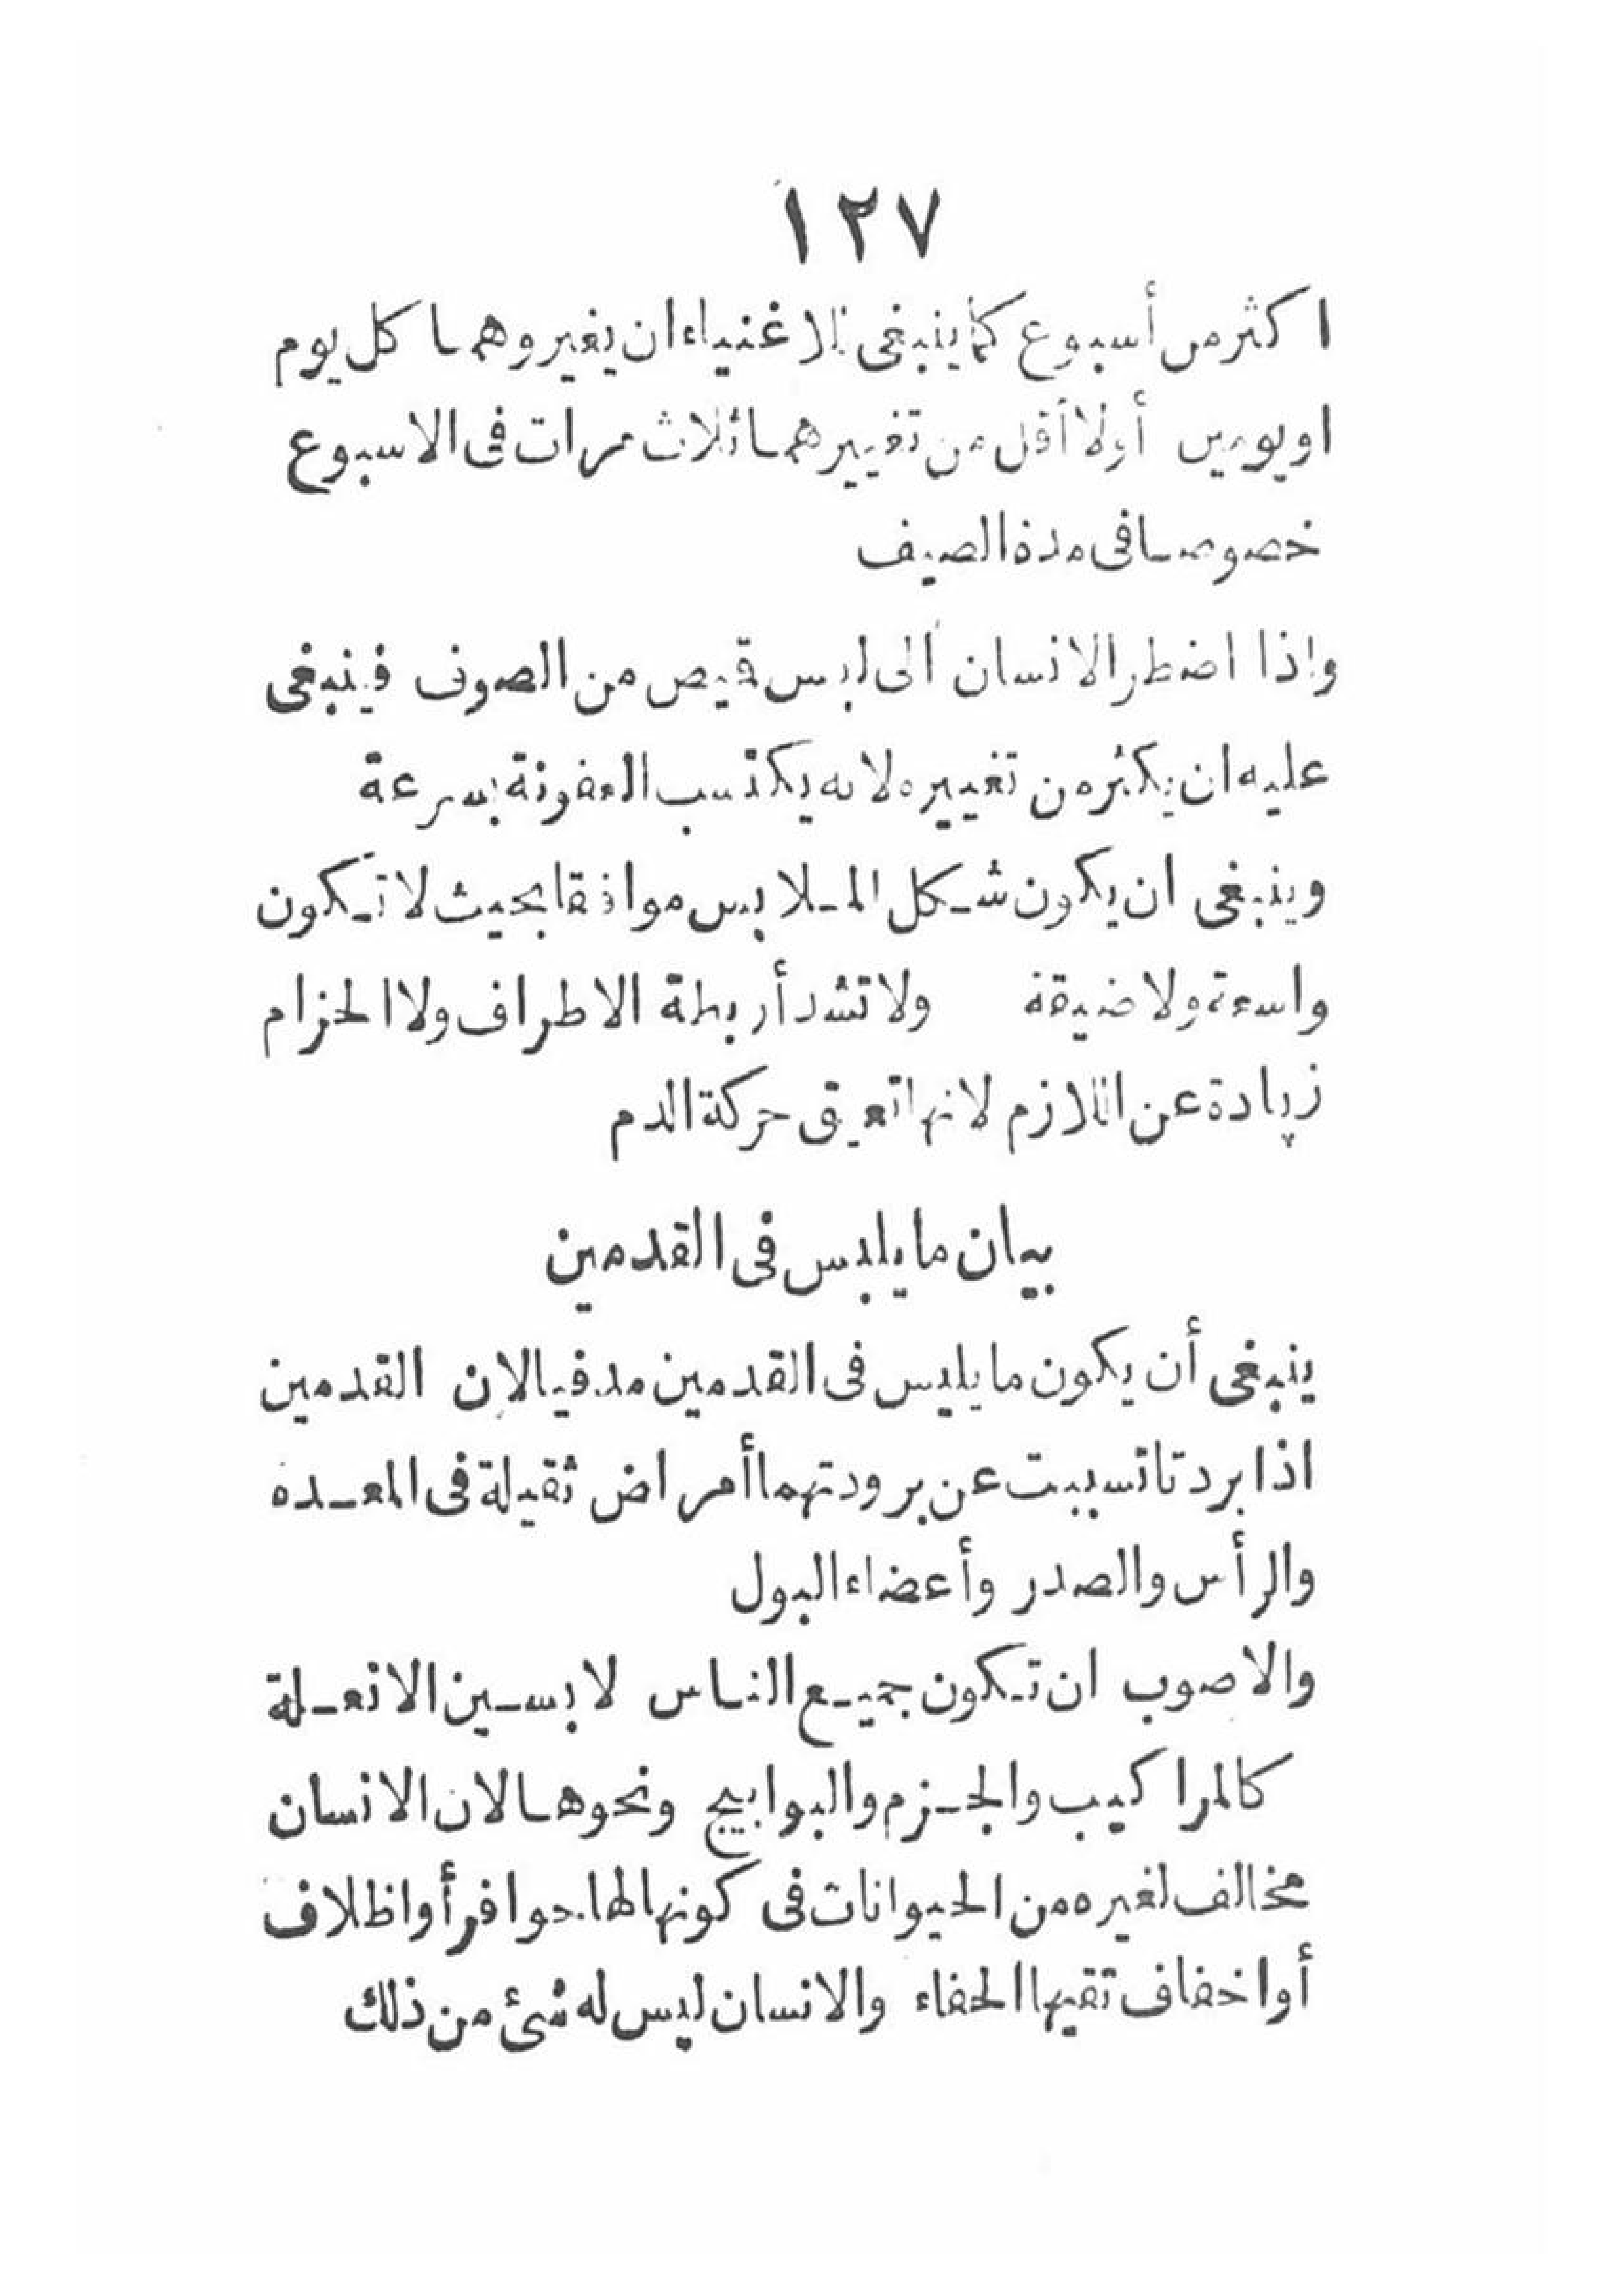 ١٢٧
اكثر من أسبوع كما ينبغى للاغنياء ان يغيروهما كل يوم
او يومين أولا أقل من تغييرهما ثلاث مرات فى الاسبوع
خصوصا فى مدة الصيف
واذا اضطر الانسان الى لبس قميص من الصوف فينبغى
عليه ان يكثر من تغييره لانه يكتسب العفونة بسرعة
وينبغى ان يكون شكل الملابس موافقا بحيث لا تكون
واسعة ولا ضيقة ولا تشد أربطة الاطراف ولا الحزام
زيادة عن اللازم لانها تعيق حركة الدم
بيان ما يلبس فى القدمين
ينبغى أن يكون ما يلبس فى القدمين مدفيا لان القدمين
اذا بردتا تسببت عن برودتهما أمراض ثقيلة فى المعده
والرأس والصدر وأعضاء البول
والاصوب ان تكون جميع الناس لابسين الانعلة
كالمراكيب والجزم والبوابيج ونحوها لان الانسان
مخالف لغيره من الحيوانات فى كونها لها حوافر أو اظلاف
أو اخفاف تقيها الحفاء والانسان ليس له شئ من ذلك